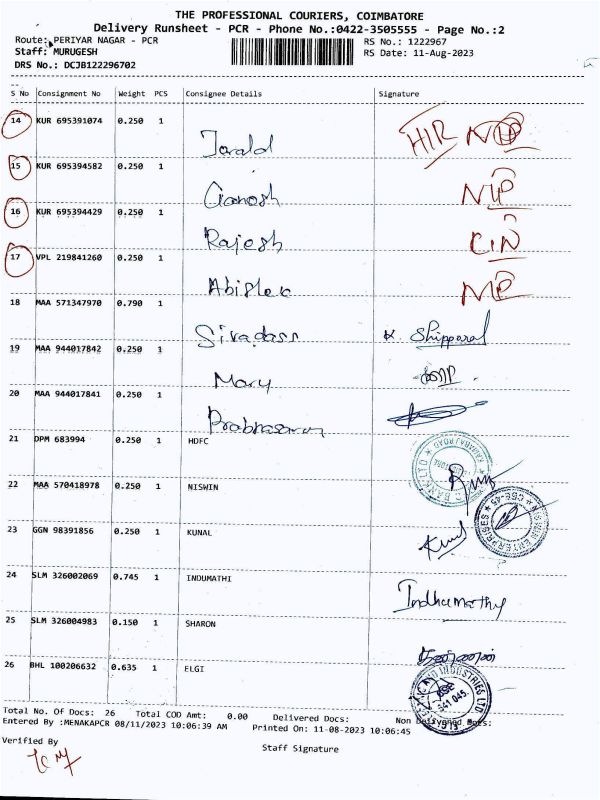 THE PROFESSIONAL COURIERS, COIMBATORE
Delivery Runsheet - PCR - Phone No.:0422-3505555 - Page No.:2
Route: PERIYAR NAGAR - PCR
RS No.: 1222967
Staff: MURUGESH
RS Date: 11-Aug-2023
DRS No.: DCJB122296702
S No Consignment No Weight PCS Consignee Details Signature
14 KUR 695391074 0.250 1
15 KUR 695394582 0.250 1 Ganesh
16 KUR 695394429 0.250 1 Rajesh
17 VPL 219841260 0.250 1 Abishek
18 MAA 571347970 0.790 1 Sivadass
19 MAA 944017842 0.250 1 Mary
20 MAA 944017841 0.250 1
21 DPM 683994 0.250 1 HDFC
22 MAA 570418978 0.250 1 NISWIN
23 GGN 98391856 0.250 1 KUNAL
24 SLM 326002069 0.745 1 INDUMATHI Indhumathy
25 SLM 326004983 0.150 1 SHARON
26 BHL 100206632 0.635 1 ELGI
Total No. Of Docs: 26 Total COD Amt: 0.00 Delivered Docs: Non Delivered Docs:
Entered By :MENAKAPCR 08/11/2023 10:06:39 AM Printed On: 11-08-2023 10:06:45
Verified By
Staff Signature